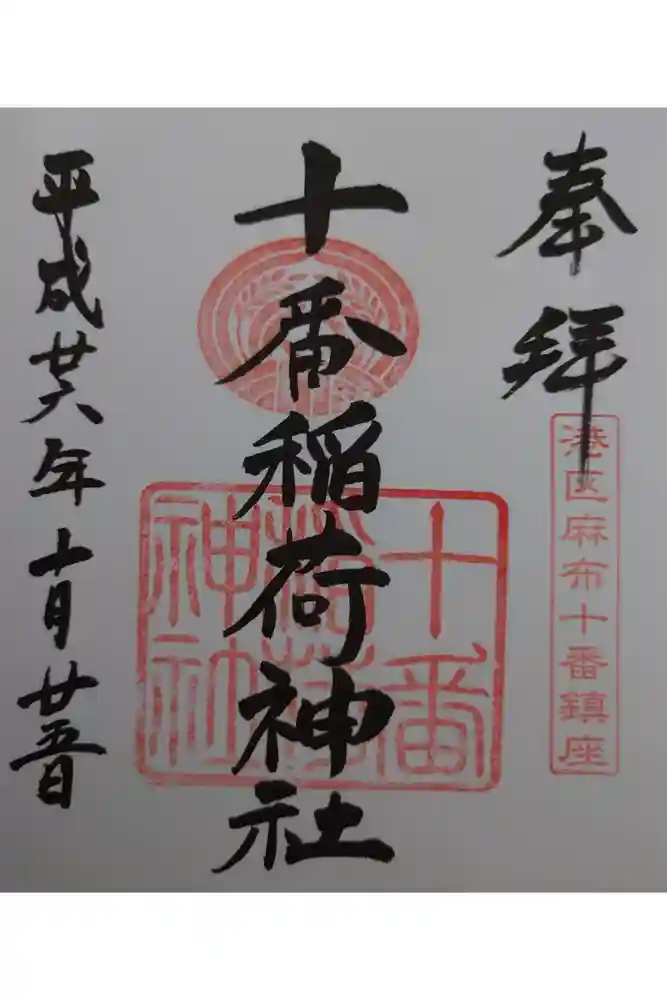 奉拝
港区麻布十番鎮座
十番稲荷神社
十番稲荷神社
平成廿六年十月廿五日